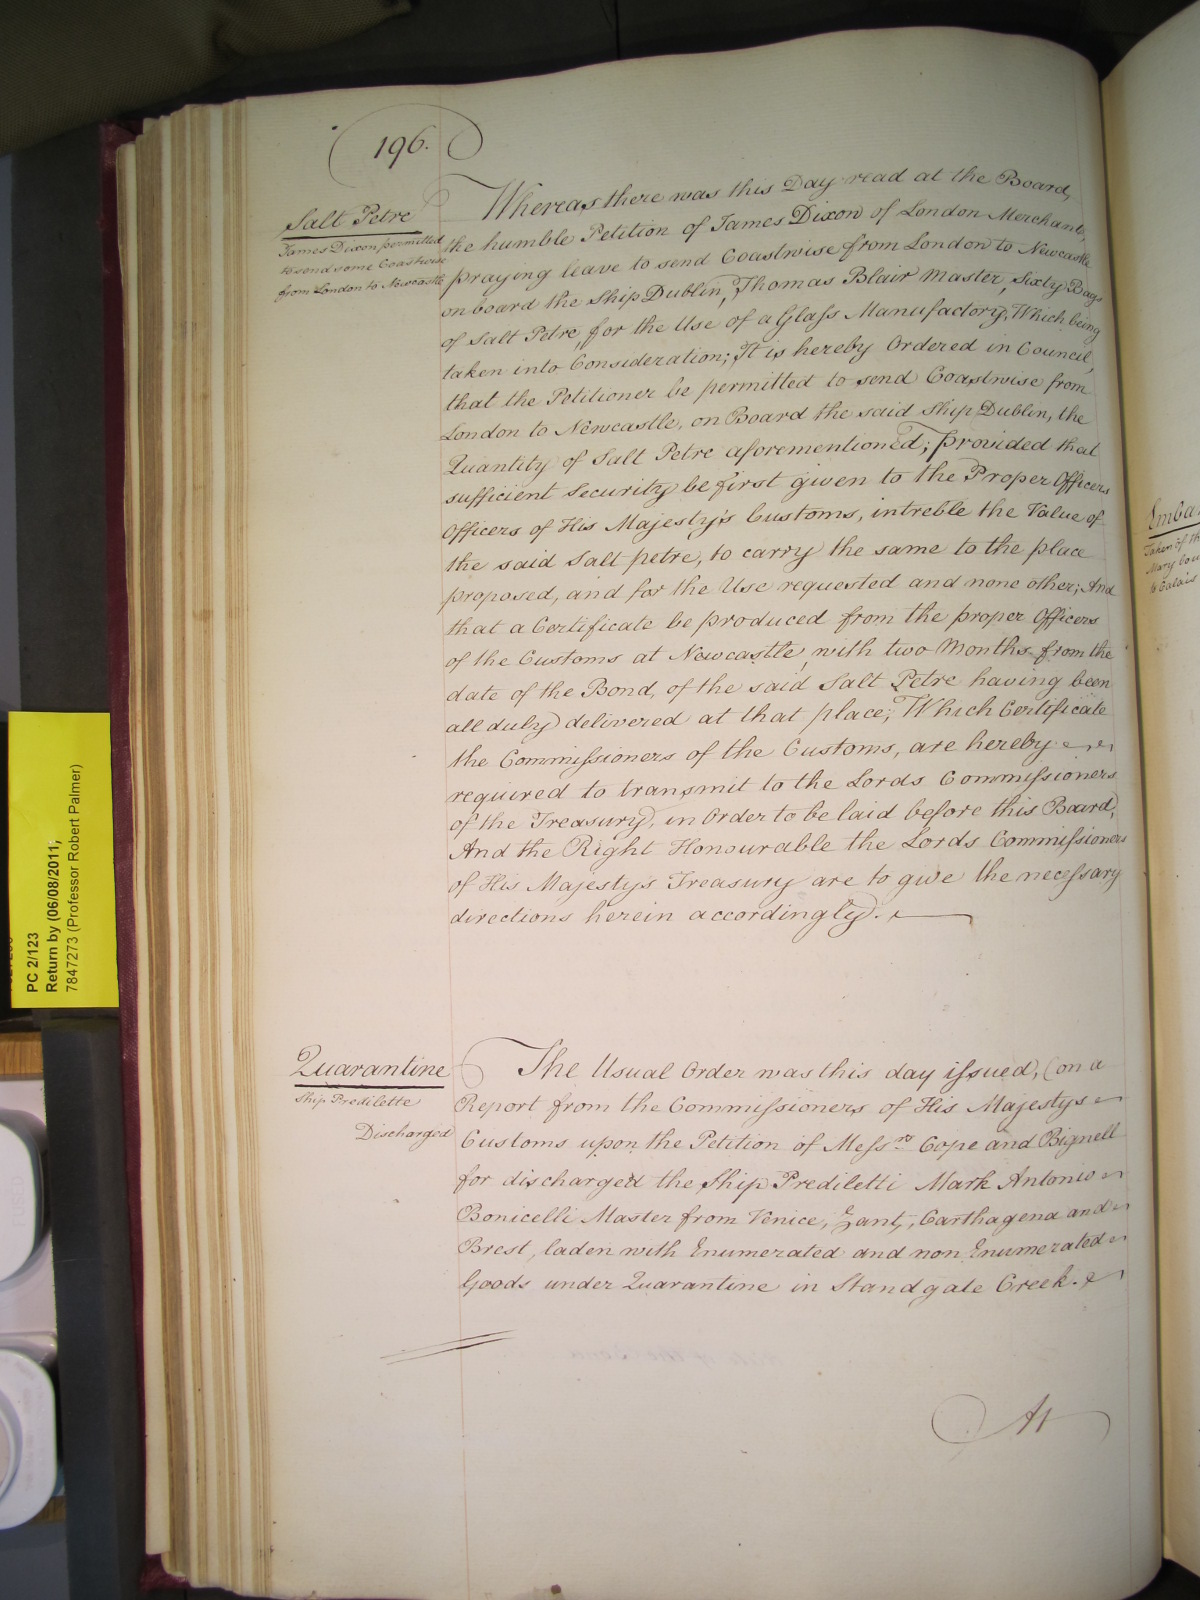 196.
Salt Petre
James Dixon permitted
to send some Coastwise
from London to Newcastle
Whereas there was this Day read at the Board,
the humble Petition of James Dixon of London Merchant,
praying leave to send Coastwise from London to Newcastle
on board the Ship Dublin, Thomas Blair Master, Sixty Bags
of Salt Petre, for the Use of a Glass Manufactory, Which being
taken into Consideration; It is hereby Ordered in Council,
that the Petitioner be permitted to send Coastwise from
London to Newcastle, on Board the said Ship Dublin, the
Quantity of Salt Petre aforementioned; provided that
sufficient Security be first given to the Proper Officers
Officers of His Majesty's Customs, in treble the Value of
the said Salt petre, to carry the same to the place
proposed, and for the Use requested and none other; And
that a Certificate be produced from the proper Officers
of the Customs at Newcastle, with two Months from the
date of the Bond, of the said Salt Petre having been
all duly delivered at that place; Which Certificate
the Commissioners of the Customs, are hereby
required to transmit to the Lords Commissioners
of the Treasury, in Order to be laid before this Board,
And the Right Honourable the Lords Commissioners
of His Majestys Treasury are to give the necessary
directions herein accordingly.
Quarantine
Ship Predilette
Discharged
The Usual Order was this day issued, (on a
Report from the Commissioners of His Majestys
Customs upon the Petition of Messrs Cope and Bignell
for discharged the Ship Prediletti Mark Antonio
Bonicelli Master from Venice, Zant, Carthagena and
Brest, laden with Enumerated and non Enumerated
Goods under Quarantine in Standgate Creek.
At
Embar
Taken of th
Mary bou
to Calais
PC 2/123
Return by (06/08/2011;
7847273 (Professor Robert Palmer)